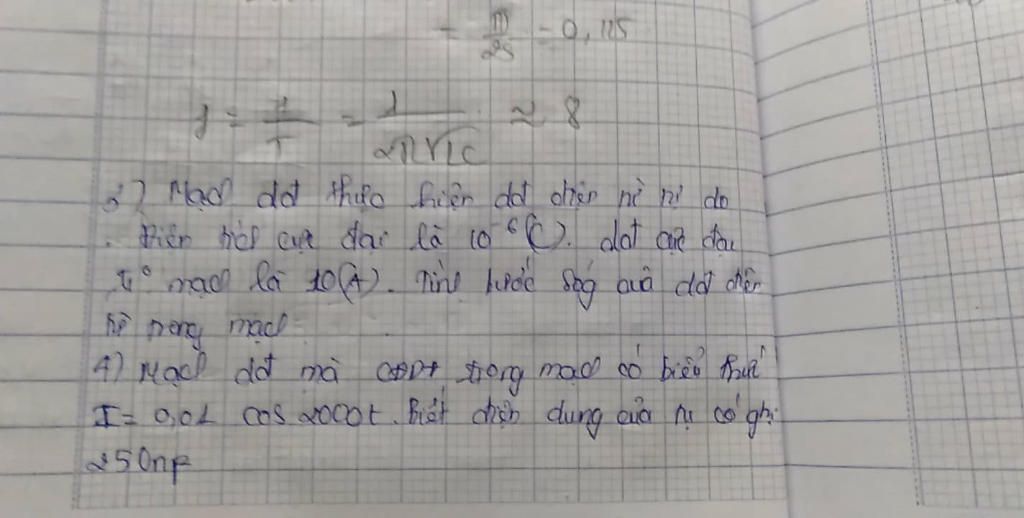 = π/25 = 0,115
f = 1/T = 1/2π√LC ≈ 8
3) Mạch dđ thực hiện dđ điện từ tự do
điện tích cực đại là 10⁻⁶(C). dđ cực đại
I° mạch là 10(A). Tính bước sóng của dđ điện
từ trong mạch
4) Mạch dđ mà CĐDĐ trong mạch có biểu thức
I = 0,01 cos 2000t. Biết điện dung của tụ có ghi
250nF